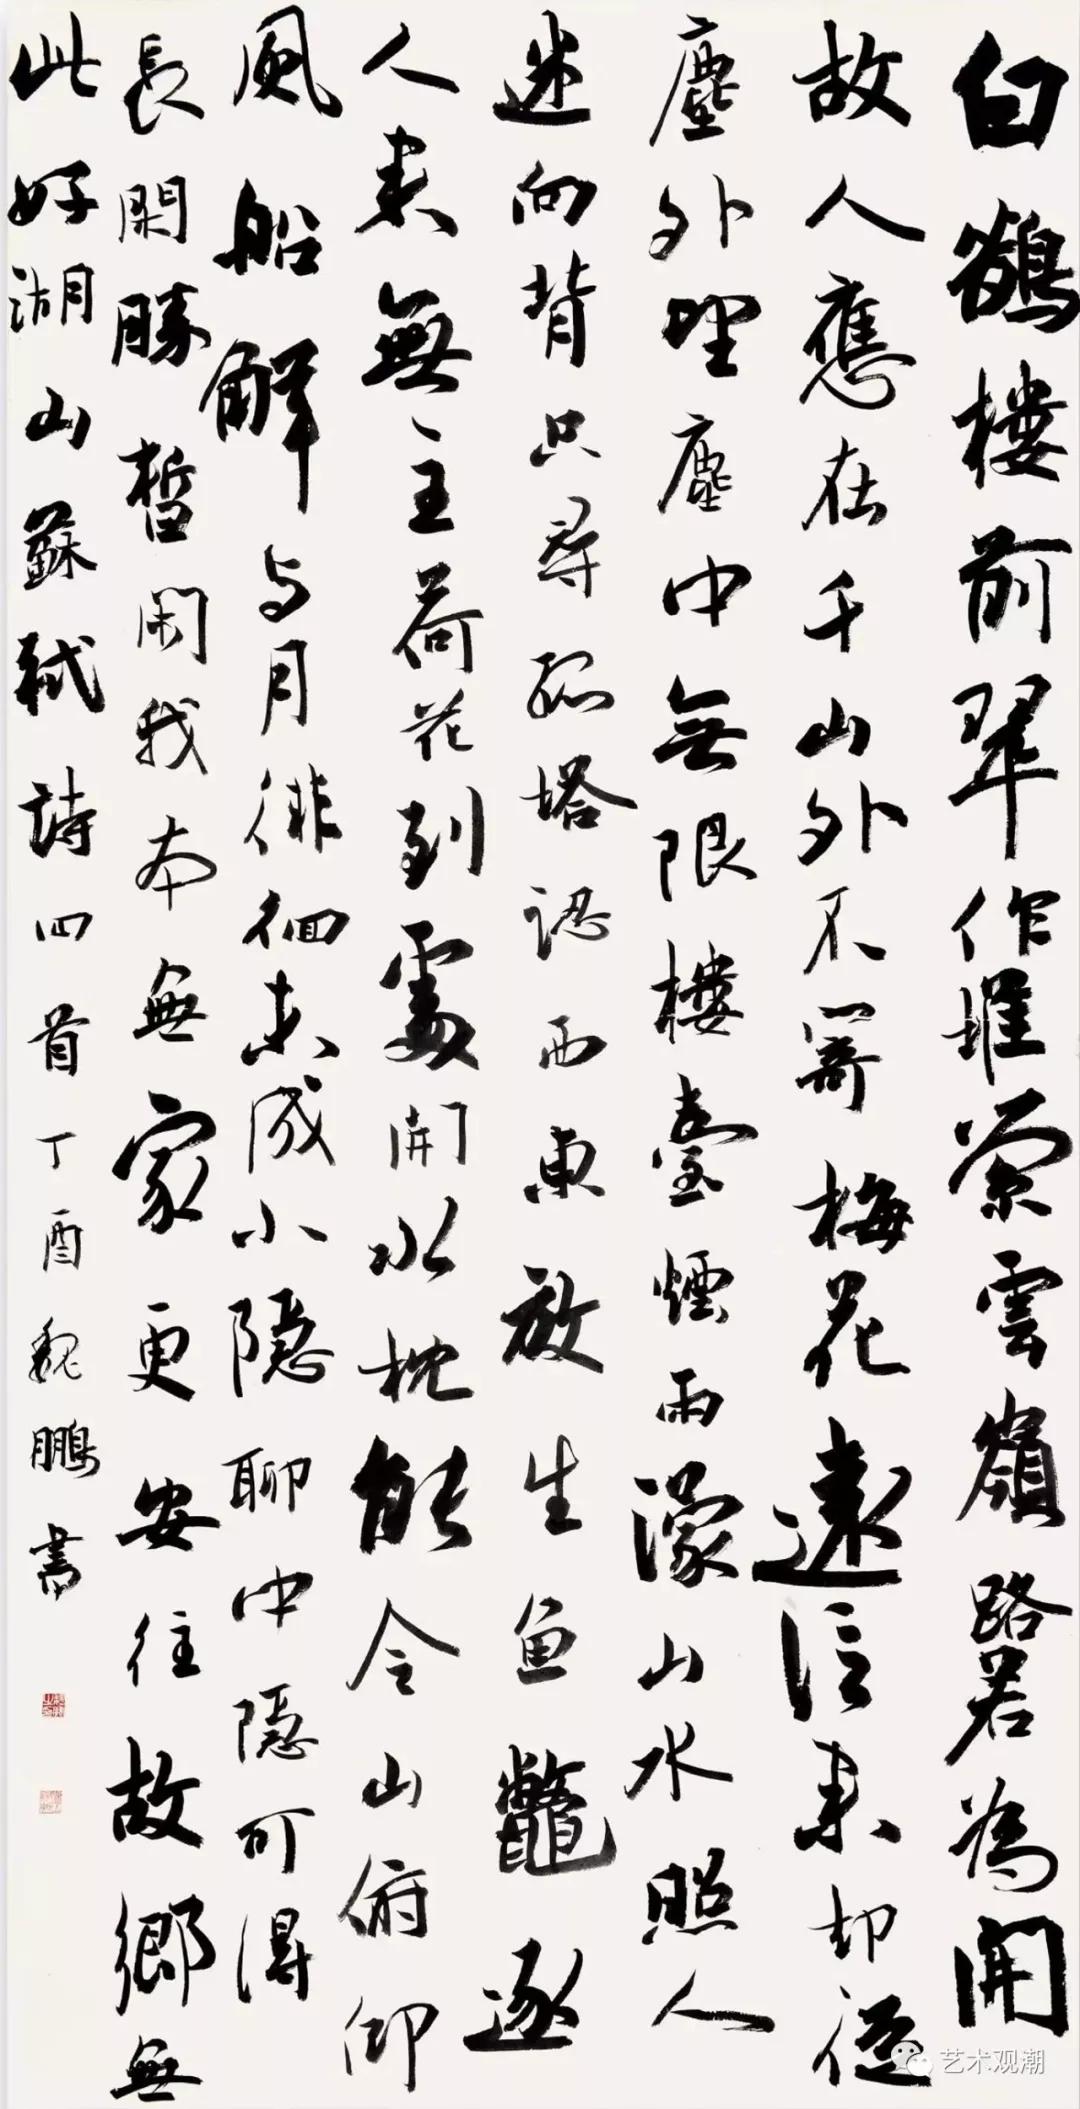 白鶴樓前翠作堆縈雲嶺路若為開
故人應在千山外不寄梅花遠信来却從
塵外望塵中無限樓臺煙雨濛山水照人
迷向背只尋孤塔認西東放生鱼鼈逐
人来無主荷花到處開水枕能令山俯仰
風船解与月徘徊未成小隱聊中隱可得
長閑勝暫閑我本無家更安往故鄉無
此好湖山蘇軾詩四首丁酉魏鵬書
艺术观潮